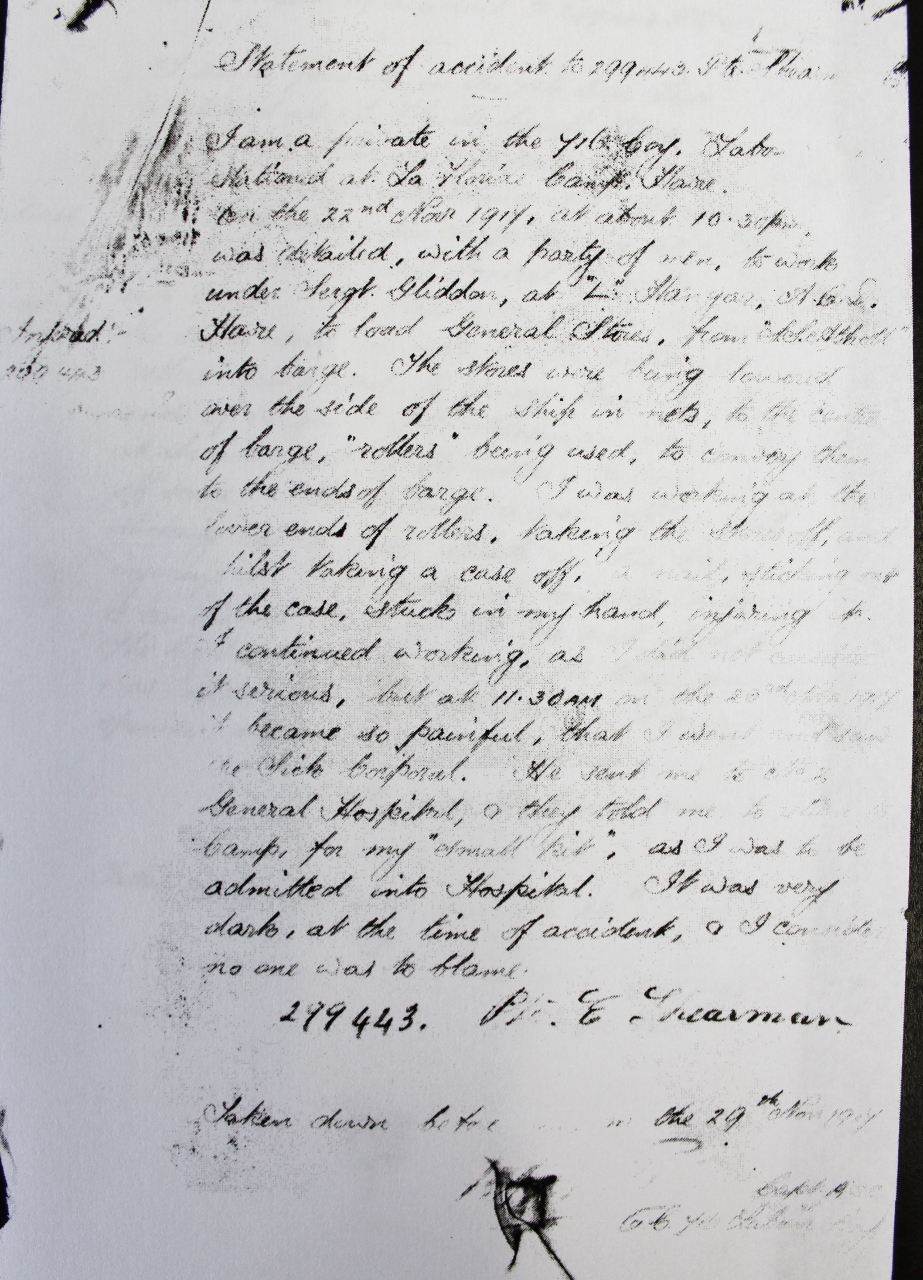 Statement of accident to 299443. Pte.
I am a private in the 7th Coy. Labo
Stationed at La Camp, Havre.
On the 22nd Nov 1917, at about 10.30pm,
was detailed, with a party of men, to work
under Sergt. Gliddon, at "L" Hangar,
Havre, to load General Stores, from
Injured:-
299443
into barge. The stores were being lowered
over the side of the ship in nets, to the centre
of barge, "rollers" being used, to convey them
to the ends of barge. I was working at the
lower ends of rollers, taking the stores off, and
hilst taking a case off, a nail, sticking out
of the case, stuck in my hand, injuring it.
I continued working, as I did not consider
it serious, but at 11.30AM on the 23rd Nov 1917
it became so painful, that I went and saw
the Sick Corporal. He sent me to No 2
General Hospital, & they told me to
Camp, for my "small kit", as I was to be
admitted into Hospital. It was very
dark, at the time of accident, & I consider
no one was to blame.
299443. Pte. E Shearman
Taken down before the 29th Nov 1917
Capt.